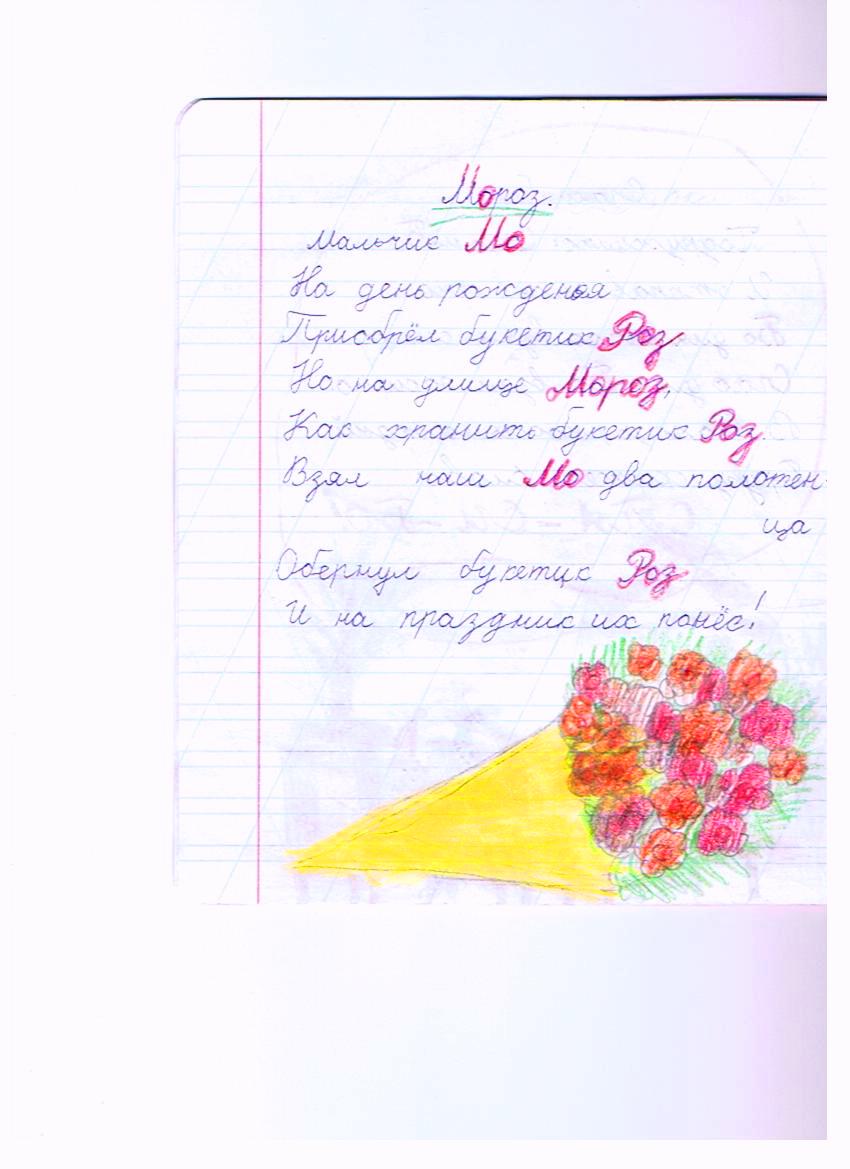 Мороз.
Мальчик Мо
На день рожденья
Приобрёл букетик Роз
Но на улице Мороз,
Как хранить букетик Роз.
Взял наш Мо два полотен-
ца
Обернул букетик Роз
И на праздник их понёс!